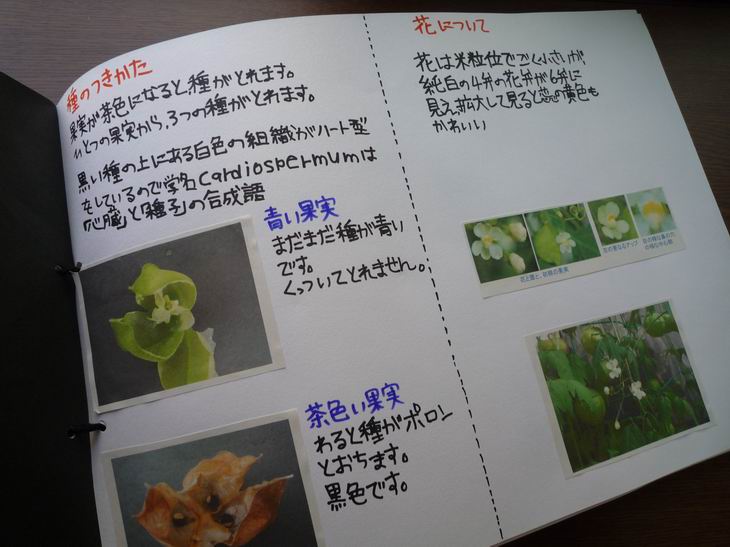 種のつきかた
果実が茶色になると種がとれます。
ひとつの果実から、3つの種がとれます。
黒い種の上にある白色の組織がハート型
をしているので学名Cardiospermumは
「心臓」と「種子」の合成語
青い果実
まだまだ種が青い
です。
くっついてとれません。
茶色い果実
わると種がポロン
とおちます。
黒色です。
花について
花は米粒位でごく小さいが、
純白の4弁の花弁が6弁に
見え、拡大して見ると芯の黄色も
かわいい
花と蕾と、初期の果実
花の重なるアップ